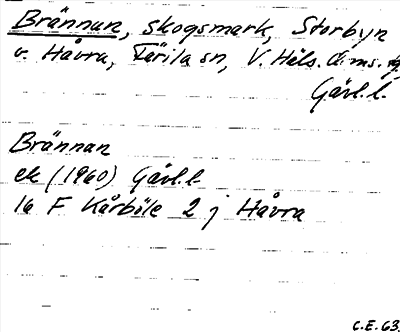 Brännan, skogsmark, Storbyn
v. Håvra, Färila sn, V. Häls. d:ms.
Gävl.l.
Brännan
ek (1960) Gävl.l.
16 F Kårböle 2 j Håvra
C.E. 63.